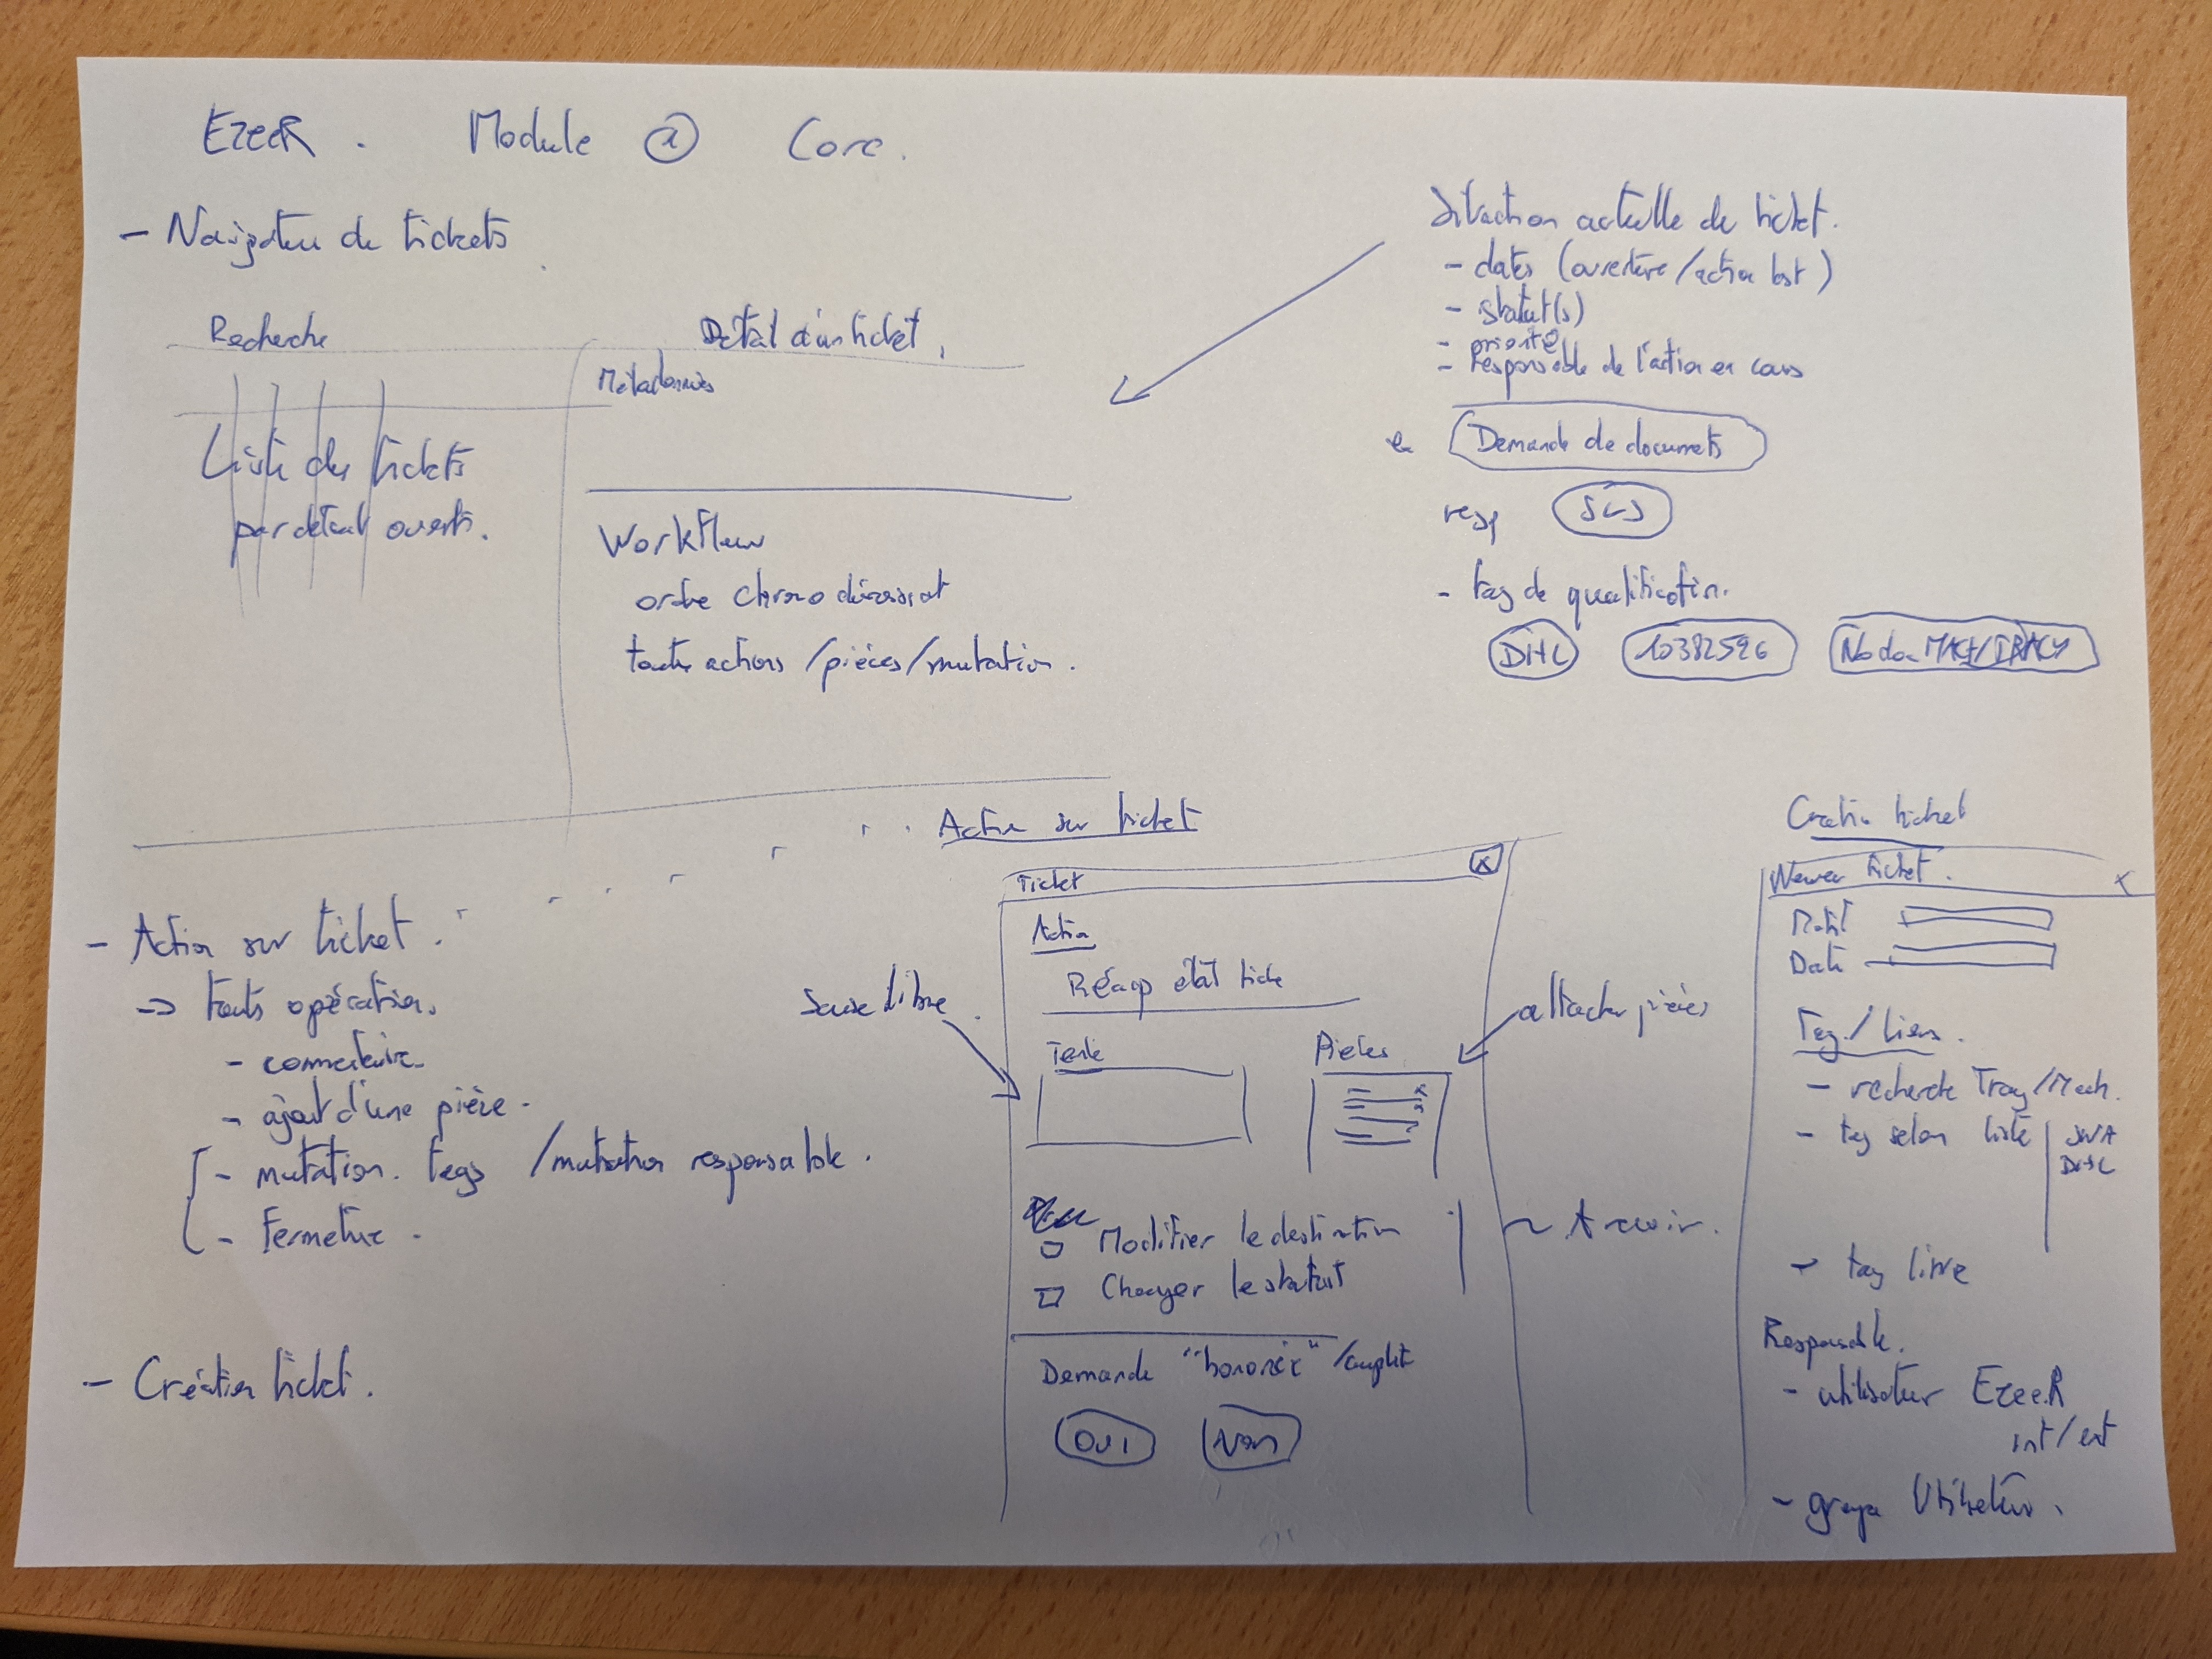 EzeeR . Module ① Core .
- Navigateur de tickets
Recherche
Liste des tickets
par défaut ouverts.
Détail d'un ticket.
Métadonnées
Workflow
ordre chrono décroissant
toute actions / pièces / mutation .
Situation actuelle de ticket.
- dates (ouverture / action last )
- statut(s)
- priorité
- Responsable de l'action en cours
Demande de documents
resp SLS
- tag de qualification.
DHL 10382596
- Action sur ticket .
-> toute opération.
- commentaire
- ajout d'une pièce -
- mutation. tags / mutation responsable .
- Fermeture .
- Création ticket .
Action sur ticket
Ticket x
Action
Récap état ticke
Saisie libre .
Texte
Pièces
attacher pièces
Modifier le destination
Changer le statut
~ A revoir .
Demande "honorée" / complète
Oui Non
Création ticket
ticket . x
Motif
Date
Tag / Liens .
- recherche Tracy / Mach.
- tag selon liste
DHL
- tag libre
Responsable.
- utilisateur EzeeR
int / ext
- groupe Utilisateur .